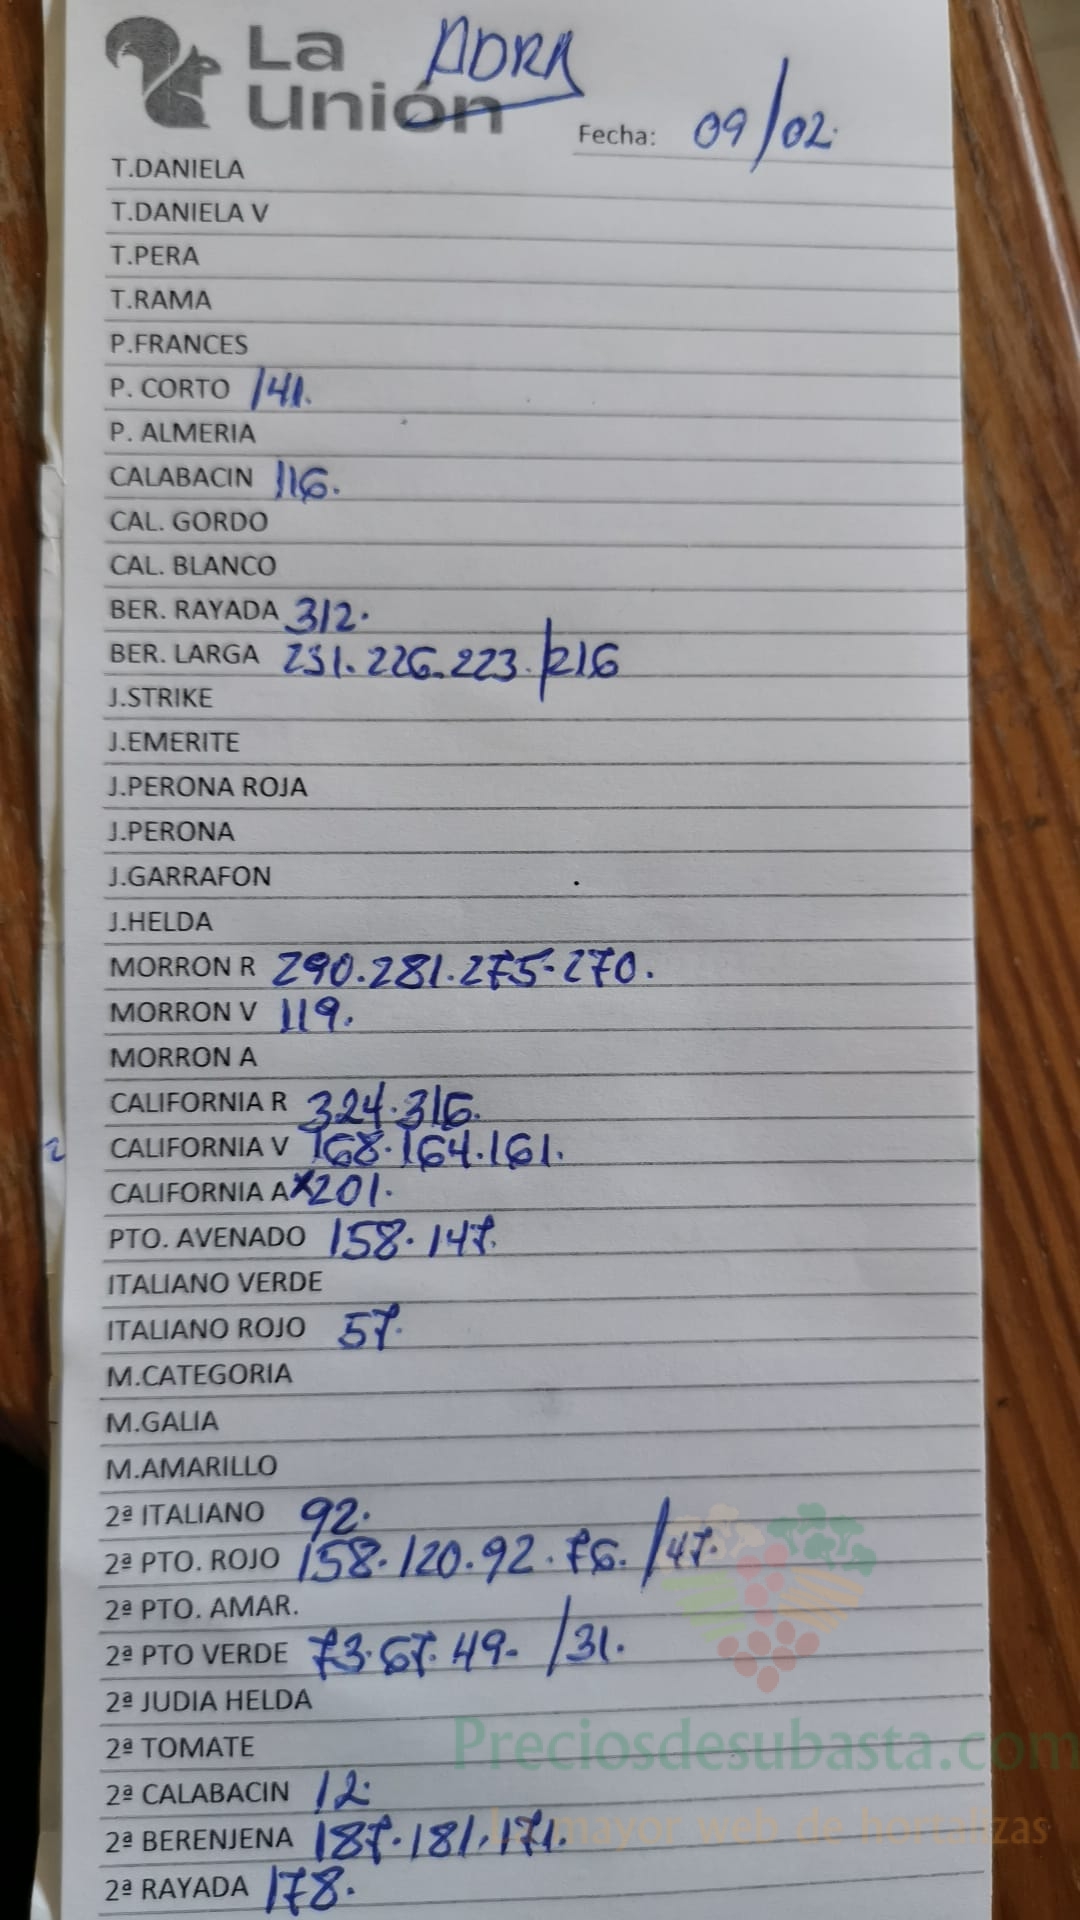 La Unión ADRA
Fecha: 09/02.
T.DANIELA
T.DANIELA V
T.PERA
T.RAMA
P.FRANCES
P. CORTO 141.
P. ALMERIA
CALABACIN 116.
CAL. GORDO
CAL. BLANCO
BER. RAYADA 312.
BER. LARGA 231.226.223./216
J.STRIKE
J.EMERITE
J.PERONA ROJA
J.PERONA
J.GARRAFON
J.HELDA
MORRON R 290.281.275.270.
MORRON V 119.
MORRON A
CALIFORNIA R 324.316.
CALIFORNIA V 168.164.161.
CALIFORNIA A x201.
PTO. AVENADO 158.147.
ITALIANO VERDE
ITALIANO ROJO 57.
M.CATEGORIA
M.GALIA
M.AMARILLO
2ª ITALIANO 92.
2ª PTO. ROJO 158.120.92.76./47.
2ª PTO. AMAR.
2ª PTO VERDE 73.67.49./31.
2ª JUDIA HELDA
2ª TOMATE
Preciosdesubasta.com
2ª CALABACIN 12.
2ª BERENJENA 187.181.171.
La mayor web de hortalizas
2ª RAYADA 178.